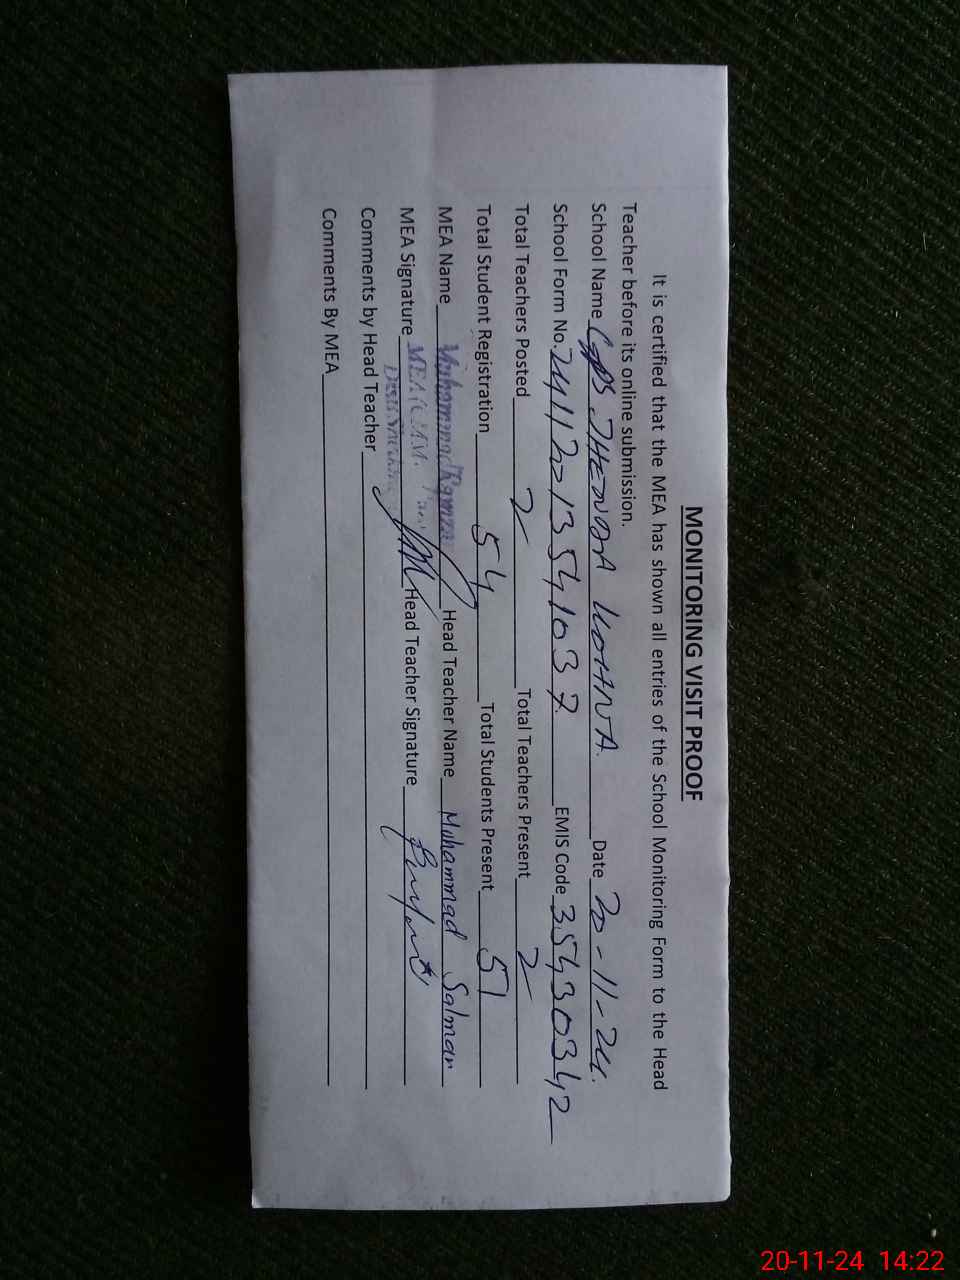 MONITORING VISIT PROOF
It is certified that the MEA has shown all entries of the School Monitoring Form to the Head
Teacher before its online submission.
School Name GPS JHENDA Date 20-11-24.
School Form No. EMIS Code 35430342
Total Teachers Posted 2 Total Teachers Present 2
Total Student Registration 54 Total Students Present 51
MEA Name Muhammad Ramzan Head Teacher Name Muhammad Salman
MEA Signature MEA Head Teacher Signature
Comments by Head Teacher
Comments By MEA
20-11-24 14:22